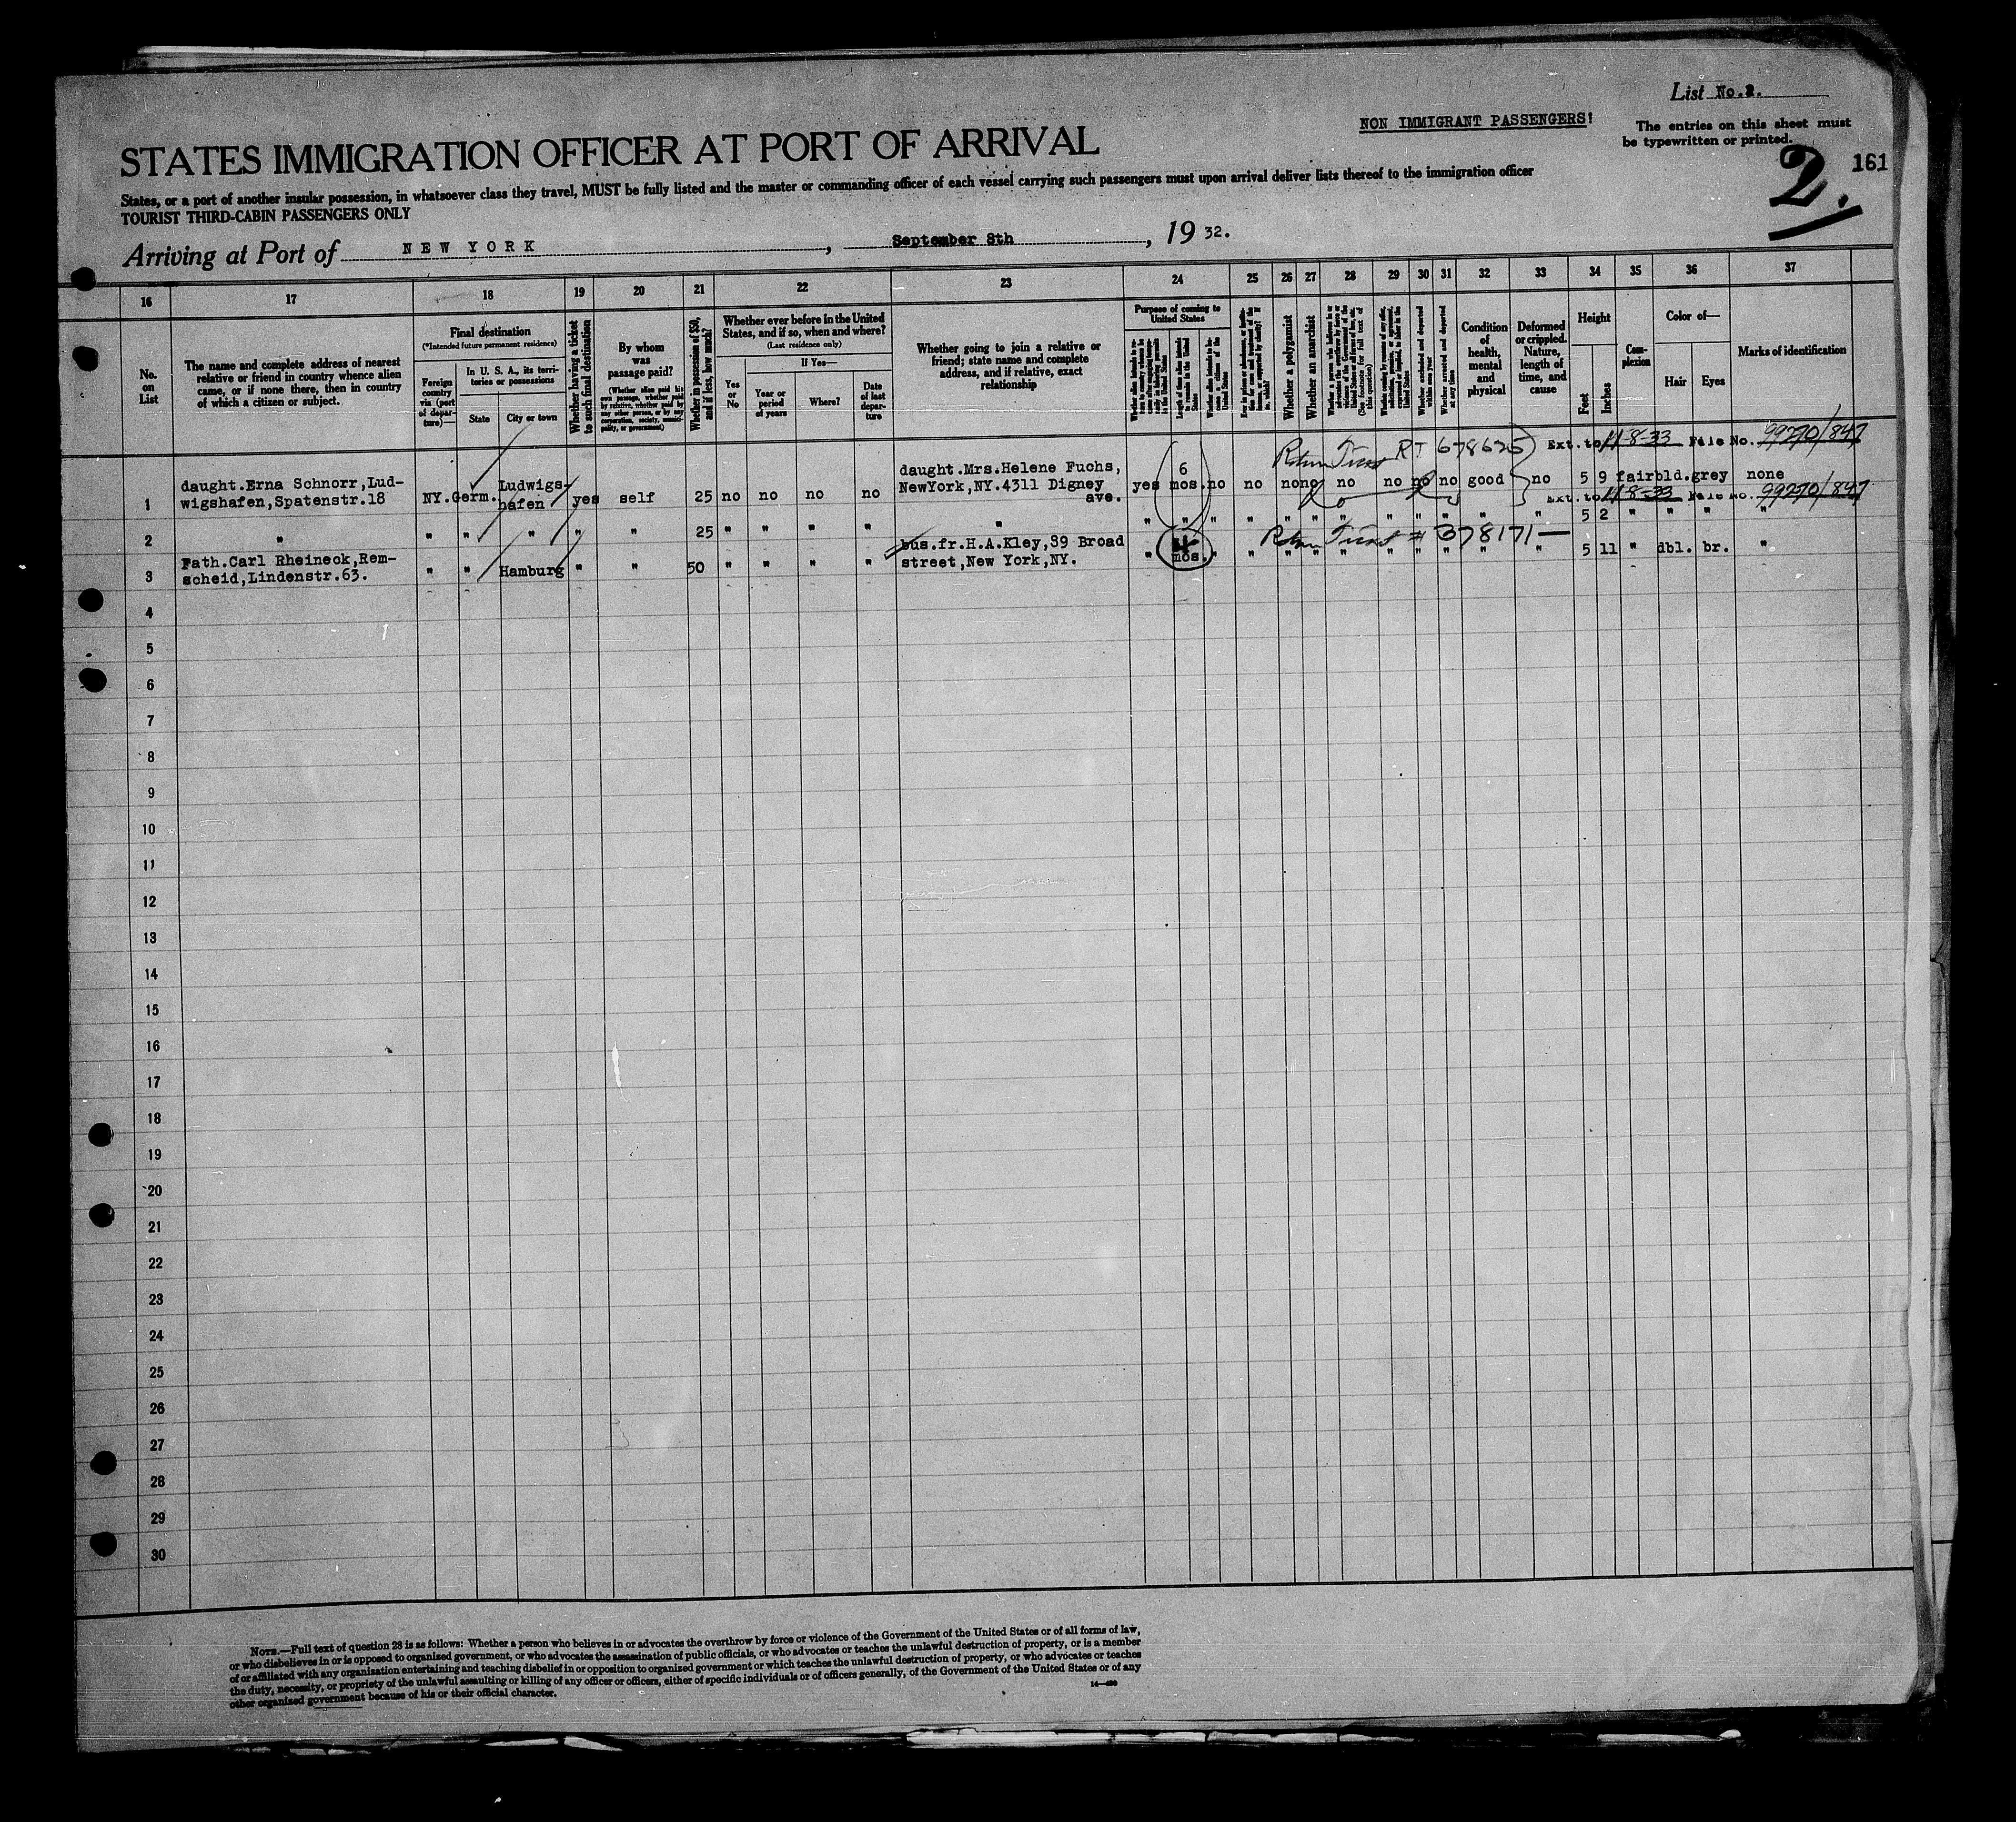 List No.2.
NON IMMIGRANT PASSENGERS!
The entries on this sheet must
be typewritten or printed.
2.
161
STATES IMMIGRATION OFFICER AT PORT OF ARRIVAL
States, or a port of another insular possession, in whatsoever class they travel, MUST be fully listed and the master or commanding officer of each vessel carrying such passengers must upon arrival deliver lists thereof to the immigration officer
TOURIST THIRD-CABIN PASSENGERS ONLY
Arriving at Port of NEW YORK, September 8th, 19 32.
16 17 18 19 20 21 22 23 24 25 26 27 28 29 30 31 32 33 34 35 36 37
No.
on
List
The name and complete address of nearest
relative or friend in country whence alien
came, or if none there, then in country
of which a citizen or subject.
Final destination
(*Intended future permanent residence)
Foreign
country
via (port
of depar-
ture)—
In U. S. A., its terri-
tories or possessions
State
City or town
Whether having a ticket
to such final destination
By whom
was
passage paid?
(Whether alien paid his
own passage, whether paid
by relative, whether paid by
any other person, or by any
corporation, society, munici-
pality, or government)
Whether in possession of $50,
and if less, how much?
Whether ever before in the United
States, and if so, when and where?
(Last residence only)
Yes
or
No
If Yes—
Year or
period
of years
Where?
Date
of last
depar-
ture
Whether going to join a relative or
friend; state name and complete
address, and if relative, exact
relationship
Purpose of coming to
United States
Length of time alien intends
to remain in the United
States
Whether a polygamist
Whether an anarchist
(See footnote for full text of
this question)
Whether arrested and deported
at any time
Condition
of
health,
mental
and
physical
Deformed
or crippled.
Nature,
length of
time, and
cause
Height
Feet
Inches
Com-
plexion
Color of—
Hair
Eyes
Marks of identification
RT 678625 Ext. to 11-8-33 File No. 99270/847
1 daught.Erna Schnorr,Lud-
wigshafen,Spatenstr.18 NY. Germ. Ludwigs-
hafen yes self 25 no no no no daught.Mrs.Helene Fuchs,
NewYork,NY.4311 Digney
ave. yes 6
mos. no no no no no no no no good no 5 9 fair bld. grey none
Ext. to 11-8-33 File No. 99270/847
2 " " " " " " 25 " " " " " " " " " " " " " " " " " " 5 2 " " " "
# 378171—
3 Fath.Carl Rheineck,Rem-
scheid,Lindenstr.63. " " Hamburg " " 50 " " " " bus.fr.H.A.Kley,39 Broad
street,New York,NY. " mos. " " " " " " " " " " 5 11 " dbl. br. "
4
5
6
7
8
9
10
11
12
13
14
15
16
17
18
19
20
21
22
23
24
25
26
27
28
29
30
NOTE.—Full text of question 28 is as follows: Whether a person who believes in or advocates the overthrow by force or violence of the Government of the United States or of all forms of law,
or who disbelieves in or is opposed to organized government, or who advocates the assassination of public officials, or who advocates or teaches the unlawful destruction of property, or is a member
of or affiliated with any organization entertaining and teaching disbelief in or opposition to organized government or which teaches the unlawful destruction of property, or who advocates or teaches
the duty, necessity, or propriety of the unlawful assaulting or killing of any officer or officers, either of specific individuals or of officers generally, of the Government of the United States or of any
other organized government because of his or their official character.